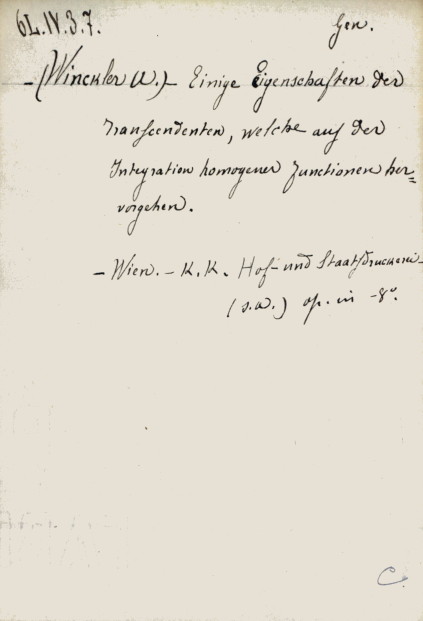 6L.IV.3.7.
Gen.
- (Winckler A.) - Einige Eigenschaften der
Transcendenten, welche aus der
Integration homogener Functionen her=
vorgehen.
- Wien. - K. K. Hof- und Staatsdruckerei -
(s.a.) op. in -8°.
C.